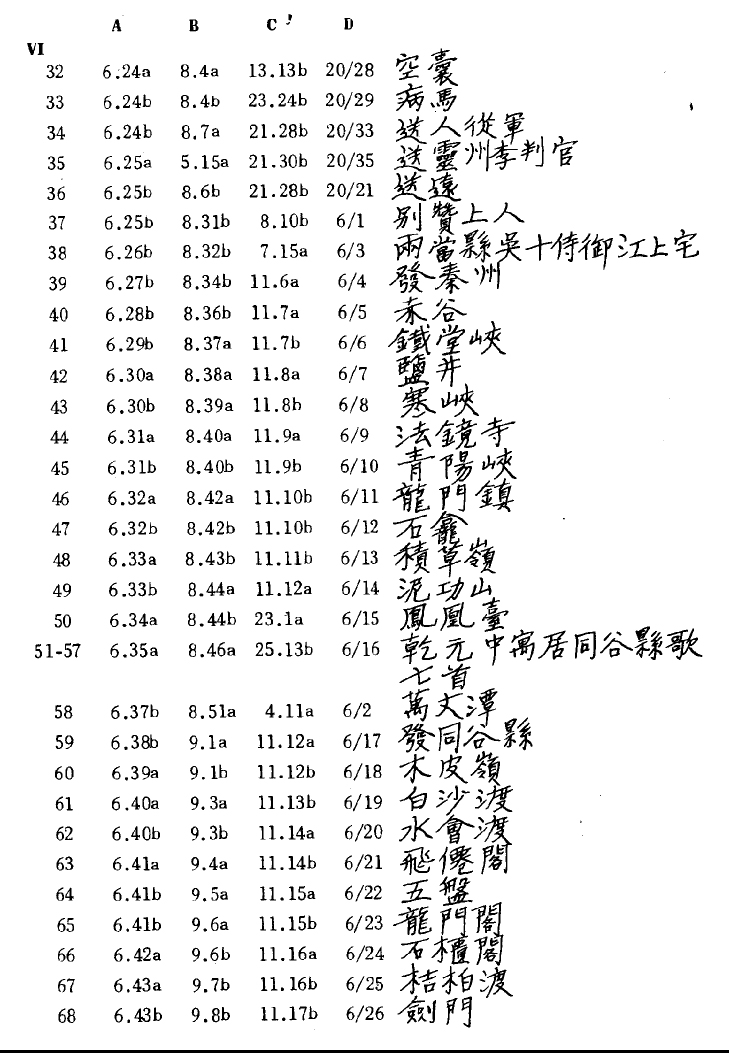 A B C D
VI
32 6.24a 8.4a 13.13b 20/28 空囊
33 6.24b 8.4b 23.24b 20/29 病馬
34 6.24b 8.7a 21.28b 20/33 送人從軍
35 6.25a 5.15a 21.30b 20/35 送靈州李判官
36 6.25b 8.6b 21.28b 20/21 送遠
37 6.25b 8.31b 8.10b 6/1 別贊上人
38 6.26b 8.32b 7.15a 6/3 兩當縣吳十侍御江上宅
39 6.27b 8.34b 11.6a 6/4 發秦州
40 6.28b 8.36b 11.7a 6/5 赤谷
41 6.29b 8.37a 11.7b 6/6 鐵堂峽
42 6.30a 8.38a 11.8a 6/7 鹽井
43 6.30b 8.39a 11.8b 6/8 寒峽
44 6.31a 8.40a 11.9a 6/9 法鏡寺
45 6.31b 8.40b 11.9b 6/10 青陽峽
46 6.32a 8.42a 11.10b 6/11 龍門鎮
47 6.32b 8.42b 11.10b 6/12 石龕
48 6.33a 8.43b 11.11b 6/13 積草嶺
49 6.33b 8.44a 11.12a 6/14 泥功山
50 6.34a 8.44b 23.1a 6/15 鳳凰臺
51-57 6.35a 8.46a 25.13b 6/16 乾元中寓居同谷縣歌
七首
58 6.37b 8.51a 4.11a 6/2 萬丈潭
59 6.38b 9.1a 11.12a 6/17 發同谷縣
60 6.39a 9.1b 11.12b 6/18 木皮嶺
61 6.40a 9.3a 11.13b 6/19 白沙渡
62 6.40b 9.3b 11.14a 6/20 水會渡
63 6.41a 9.4a 11.14b 6/21 飛僊閣
64 6.41b 9.5a 11.15a 6/22 五盤
65 6.41b 9.6a 11.15b 6/23 龍門閣
66 6.42a 9.6b 11.16a 6/24 石櫃閣
67 6.43a 9.7b 11.16b 6/25 桔柏渡
68 6.43b 9.8b 11.17b 6/26 劍門